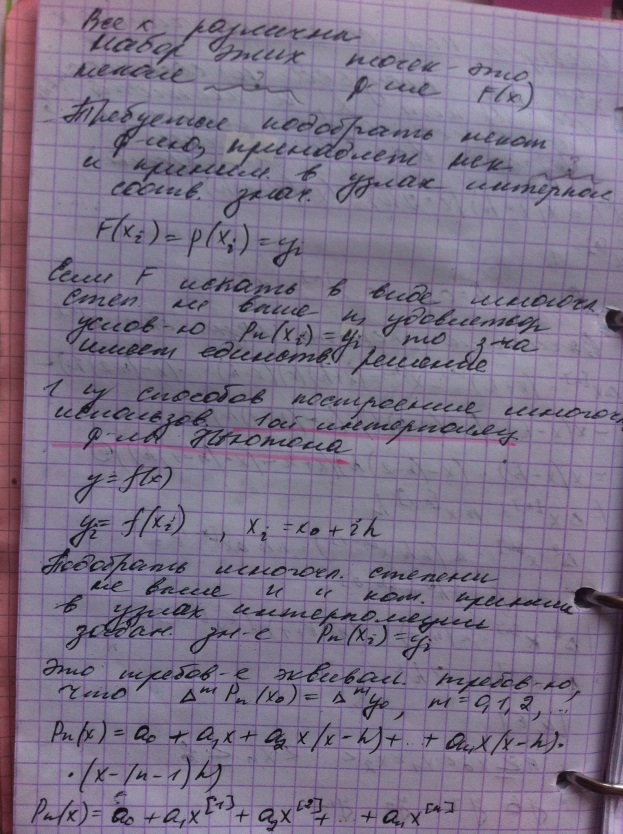 Все x различны
Набор этих точек - это
некая ф-ия F(x)
Требуется подобрать некот
ф-ию, принадлеж нек
и приним. в узлах интерпол
соотв. знач.
F(xᵢ) = p(xᵢ) = yᵢ
Если F искать в виде многочл.
степ не выше n, удовлетвор
услов-ю Pₙ(xᵢ) = yᵢ то з-ча
имеет единств. решение
1 из способов построения многочл
использов. 1ой интерполяц
ф-лы Ньютона
y = f(x)
yᵢ = f(xᵢ) , xᵢ = x₀ + ih
Подобрать многочл. степени
не выше n и кот. приним
в узлах интерполяции
задан. зн-е Pₙ(xᵢ) = yᵢ
Это требов-е эквивал. требов-ю,
что Δᵐ Pₙ(x₀) = Δᵐ y₀, m = 0,1,2,...
Pₙ(x) = a₀ + a₁x + a₂ x(x-h) + .. + aₙx(x-h)·
·(x-(n-1)h)
Pₙ(x) = a₀ + a₁x^[1] + a₂x^[2] + .. + aₙx^[n]